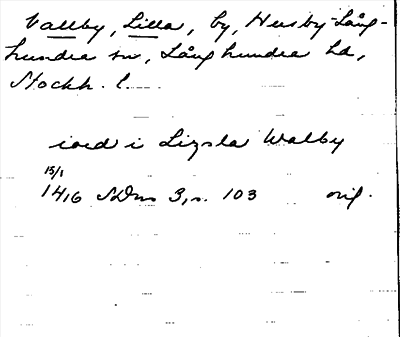 Vallby, Lilla, by, Husby-Lång-
hundra sn, Långhundra hd,
Stockh. l.
iord i Lizsla Walby
15/1
1416 SDns 3, s. 103 orig.